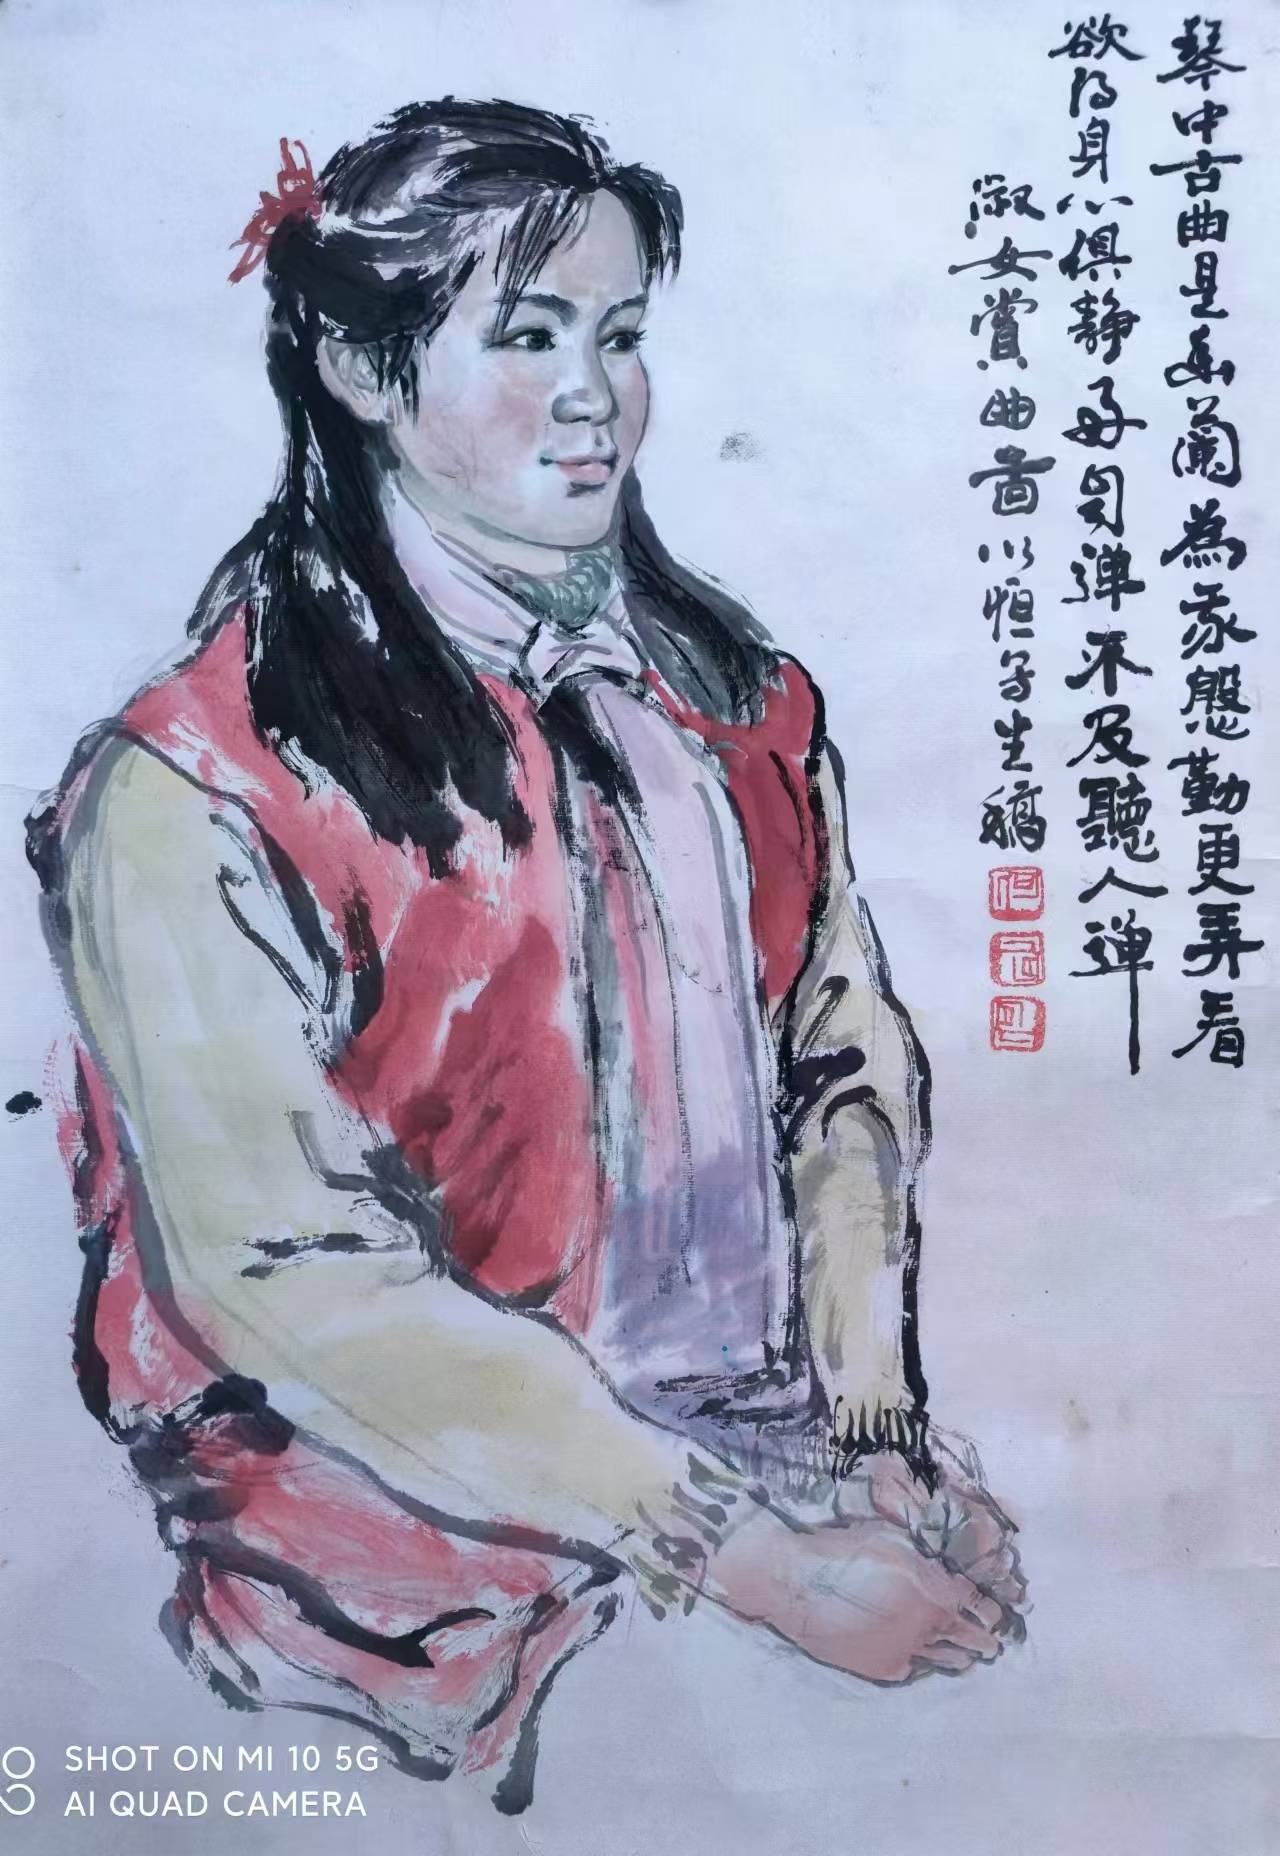 琴中古曲是幽蘭為我慇勤更弄看
欲得身心俱静好自彈不及聽人彈
淑女賞曲啚以恒写生稿
SHOT ON MI 10 5G
AI QUAD CAMERA